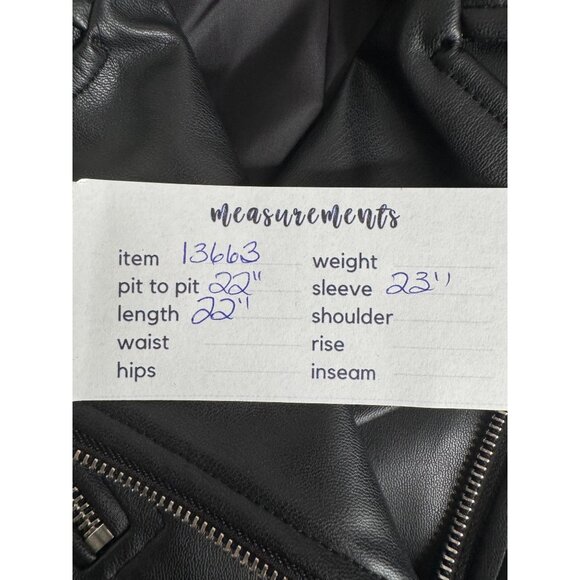 measurements
item 13663 weight
pit to pit 22" sleeve 23"
length 22" shoulder
waist rise
hips inseam